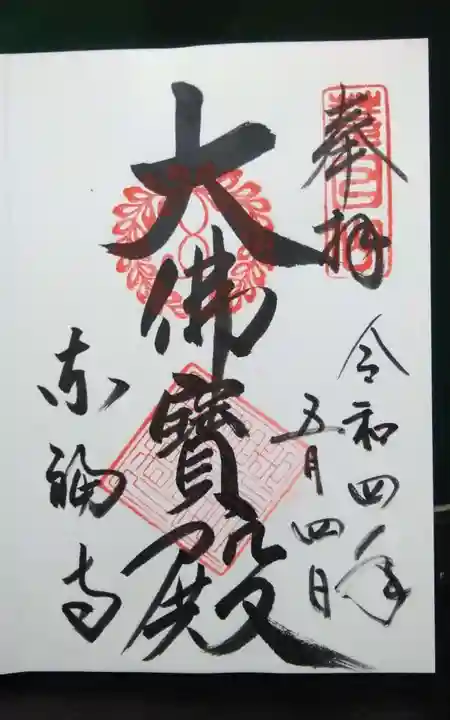 奉拝
令和四年
五月四日
大佛寶殿
东福寺